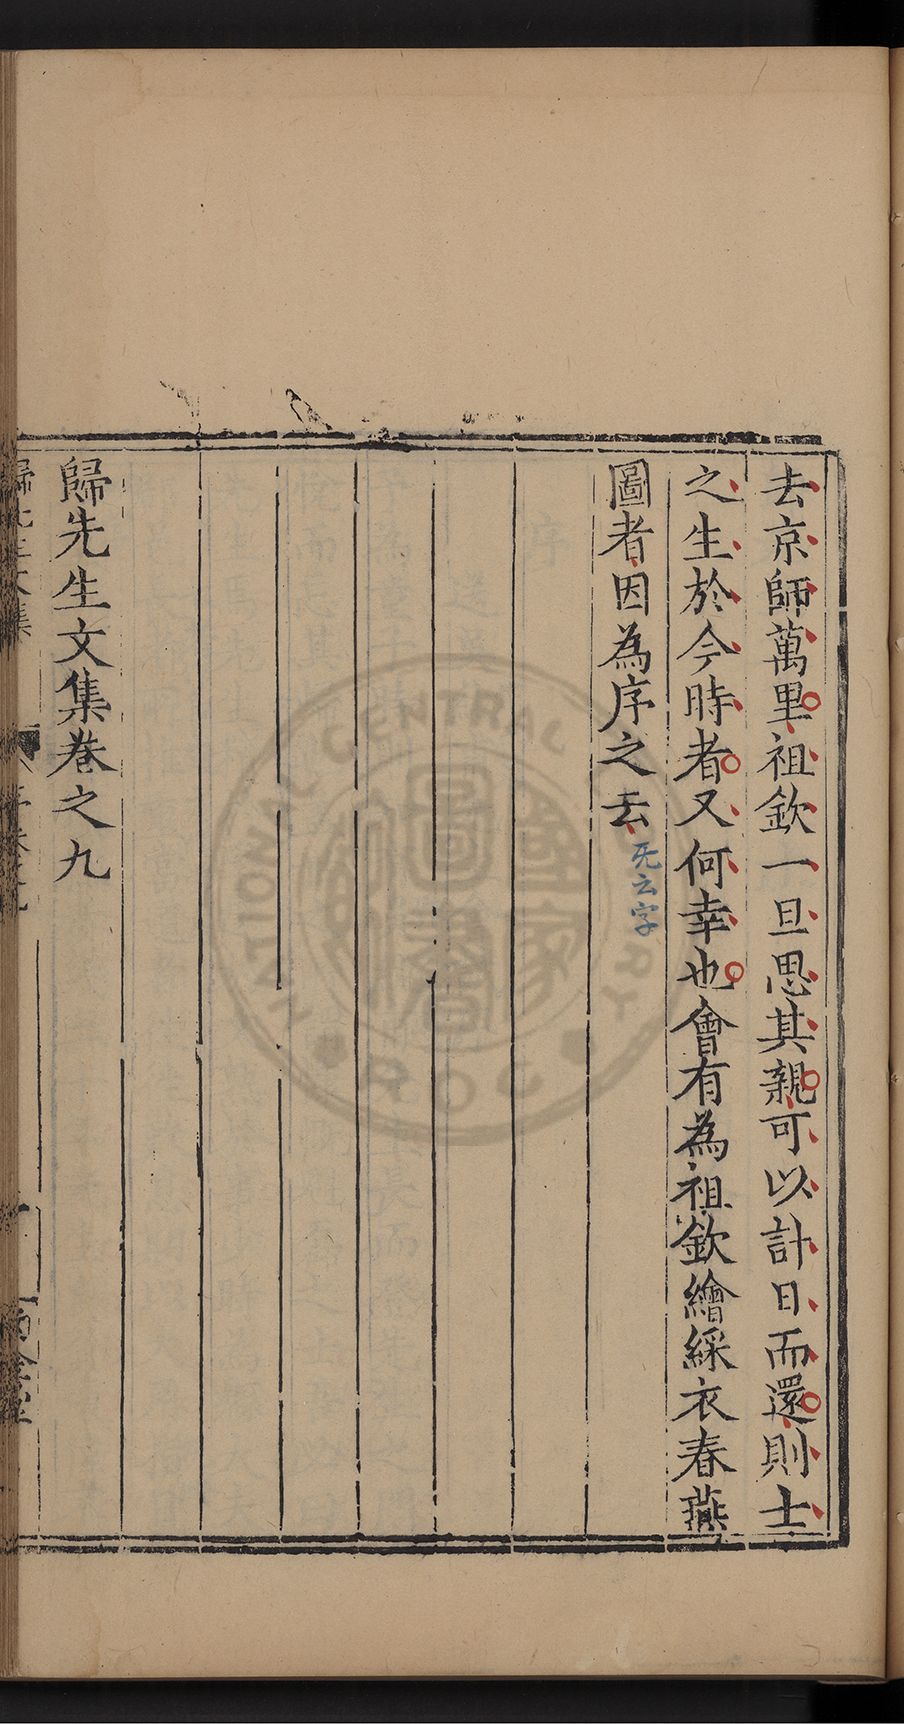 去京師萬里祖欽一旦思其親可以計日而還則士
之生於今時者又何幸也會有為祖欽繪綵衣春燕
圖者因為序之云
旡云字
歸先生文集卷之九
NATIONAL CENTRAL LIBRARY
ROC
國家圖書